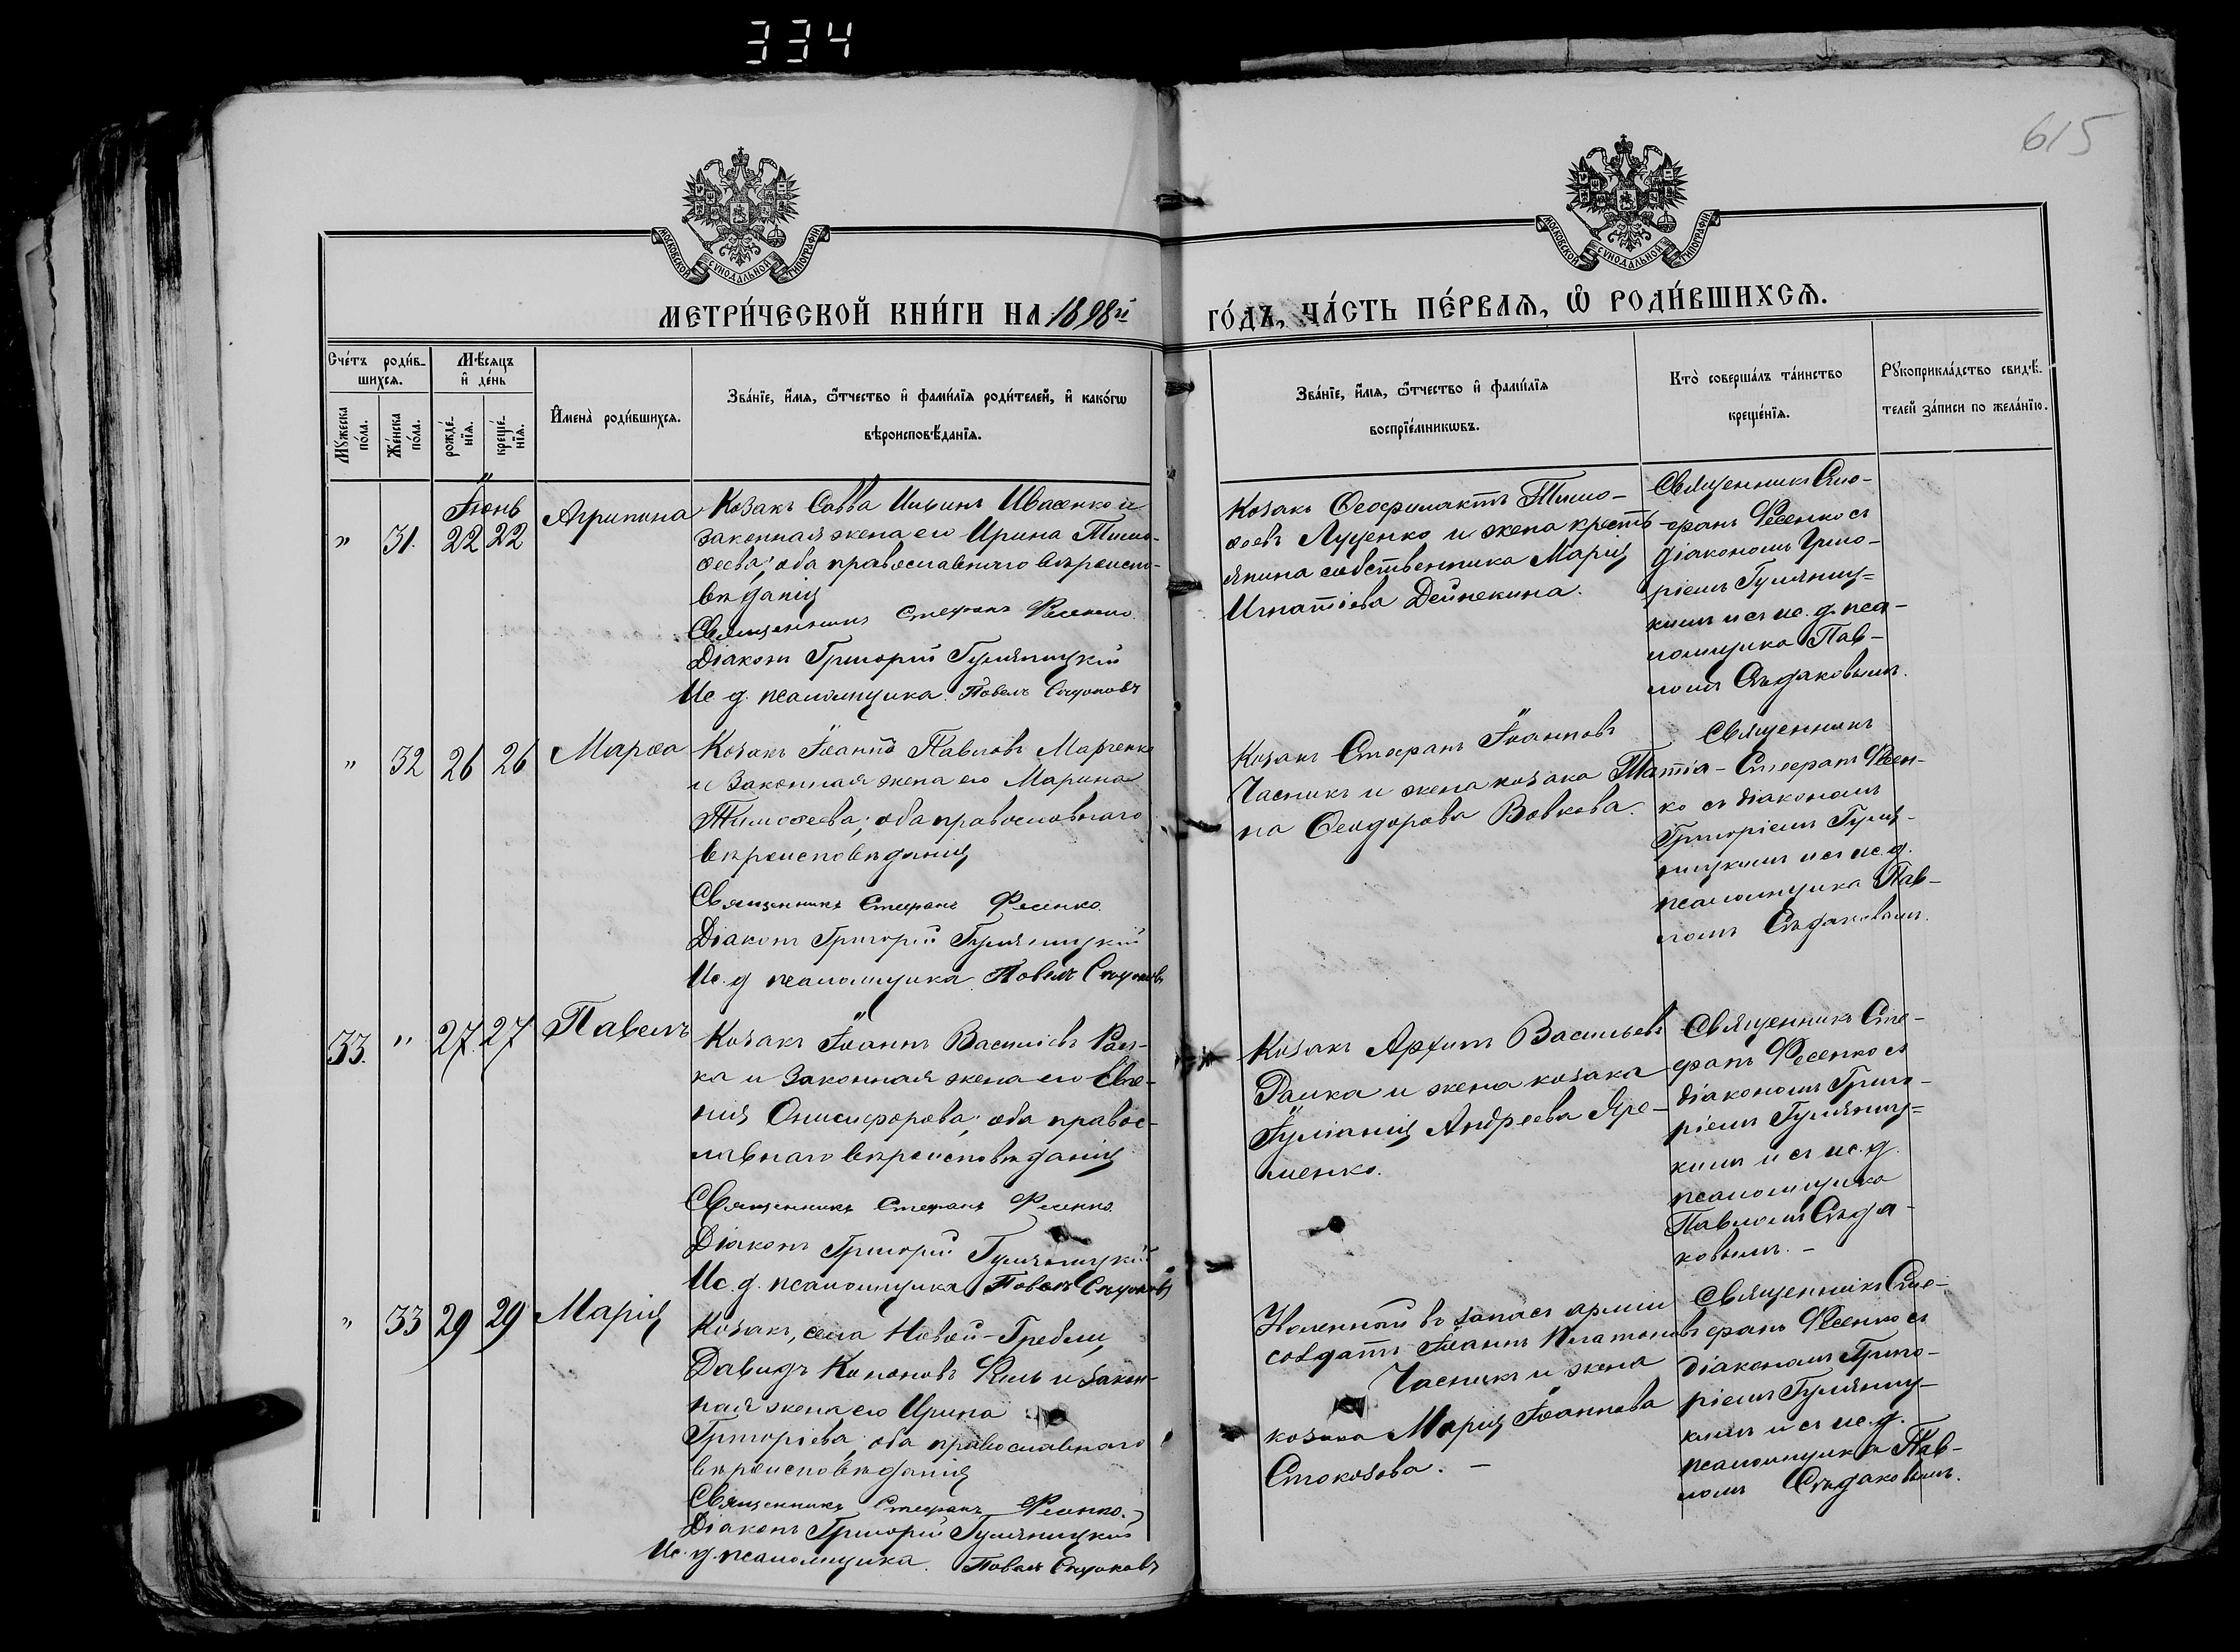 334
615
МОСКОВСКОЙ СѴНОДАЛЬНОЙ ТИПОГРАФІИ
МОСКОВСКОЙ СѴНОДАЛЬНОЙ ТИПОГРАФІИ
МЕТРИ́ЧЕСКОЙ КНИ́ГИ НА 1898й
ГО́ДЪ, ЧА́СТЬ ПЕ́РВАѦ, Ѡ҆ РОДИ́ВШИХСѦ.
Сче́тъ роди́в-
шихсѧ.
Мѣ́сяцъ
и҆ де́нь
Мꙋ́жеска
по́ла.
Же́нска
по́ла.
рожде́-
нїѧ.
креще́-
нїѧ.
И҆мена̀ роди́вшихсѧ.
Зва́нїе, и҆́мѧ, ѻ҆́тчество и҆ фами́лїѧ роди́телей, и҆ како́гѡ
вѣроисповѣ́данїѧ.
Зва́нїе, и҆́мѧ, ѻ҆́тчество и҆ фами́лїѧ
воспрїе́мникѡвъ.
Кто̀ соверша́лъ та́инство
креще́нїѧ.
Рꙋкоприкла́дство свидѣ́-
телей за́писи по жела́нїю.
Іюнь
" 31. 22 22 Агрипина
Козакъ Савва Ильинъ Ивасенко и
законная жена его Ирина Тимо-
ѳеева; оба православнаго вѣроиспо-
вѣданія
Священникъ Стефанъ Фесенко.
Діаконъ Григорій Гуляницкій
Ис. д. псаломщика Павелъ Съдаковъ
Козакъ Ѳеофилактъ Тимо-
ѳеевъ Луценко и жена кресть
янина собственника Марія
Игнатіева Дейнекина.
Священникъ Сте-
фанъ Фесенко съ
діакономъ Григо-
ріемъ Гуляниц=
кимъ и съ ис. д. пса-
ломщика Пав-
ломъ Съдаковымъ.
" 32 26 26 Марѳа
Козакъ Іоаннъ Павловъ Марченко
и законная жена его Марина
Тимоѳеева; оба православнаго
вѣроисповѣданія
Священникъ Стефанъ Фесенко.
Діаконъ Григорій Гуляницкій
Ис. д. псаломщика Павелъ Съдаковъ
Козакъ Стефанъ Іоанновъ
Часникъ и жена козака Татіа-
на Ѳеодорова Вовкова.
Священникъ
Стефанъ Фесен-
ко съ діакономъ
Григоріемъ Гуля-
ницкимъ и съ ис. д.
псаломщика Пав-
ломъ Съдаковымъ.
33. " 27. 27 Павелъ
Козакъ Іоаннъ Василіевъ Рам-
ка и законная жена его Евге-
нія Онисифорова; оба правос-
лавнаго вѣроисповѣданія
Священникъ Стефанъ Фесенко.
Діаконъ Григорій Гуляницкій
Ис. д. псаломщика Павелъ Съдаковъ
Козакъ Архипъ Васильевъ
Рамка и жена козака
Іуліанія Андреева Яре-
менко.
Священникъ Сте-
фанъ Фесенко съ
діакономъ Григо-
ріемъ Гуляниц=
кимъ и съ ис. д.
псаломщика
Павломъ Съда-
ковымъ. -
" 33 29 29 Марія
Козакъ, села Новой-Гребли,
Давидъ Кононовъ и закон-
ная жена его Ирина
Григоріева; оба православнаго
вѣроисповѣданія
Священникъ Стефанъ Фесенко.
Діаконъ Григорій Гуляницкій
Ис. д. псаломщика. Павелъ Съдаковъ
въ запасъ арміи
солдатъ Іоаннъ Платоновъ
Часникъ и жена
козака Марія Іоаннова
Стокозова. -
Священникъ Сте-
фанъ Фесенко съ
діакономъ Григо-
ріемъ Гуляниц-
кимъ и съ ис. д.
псаломщика Пав-
ломъ Съдаковымъ.